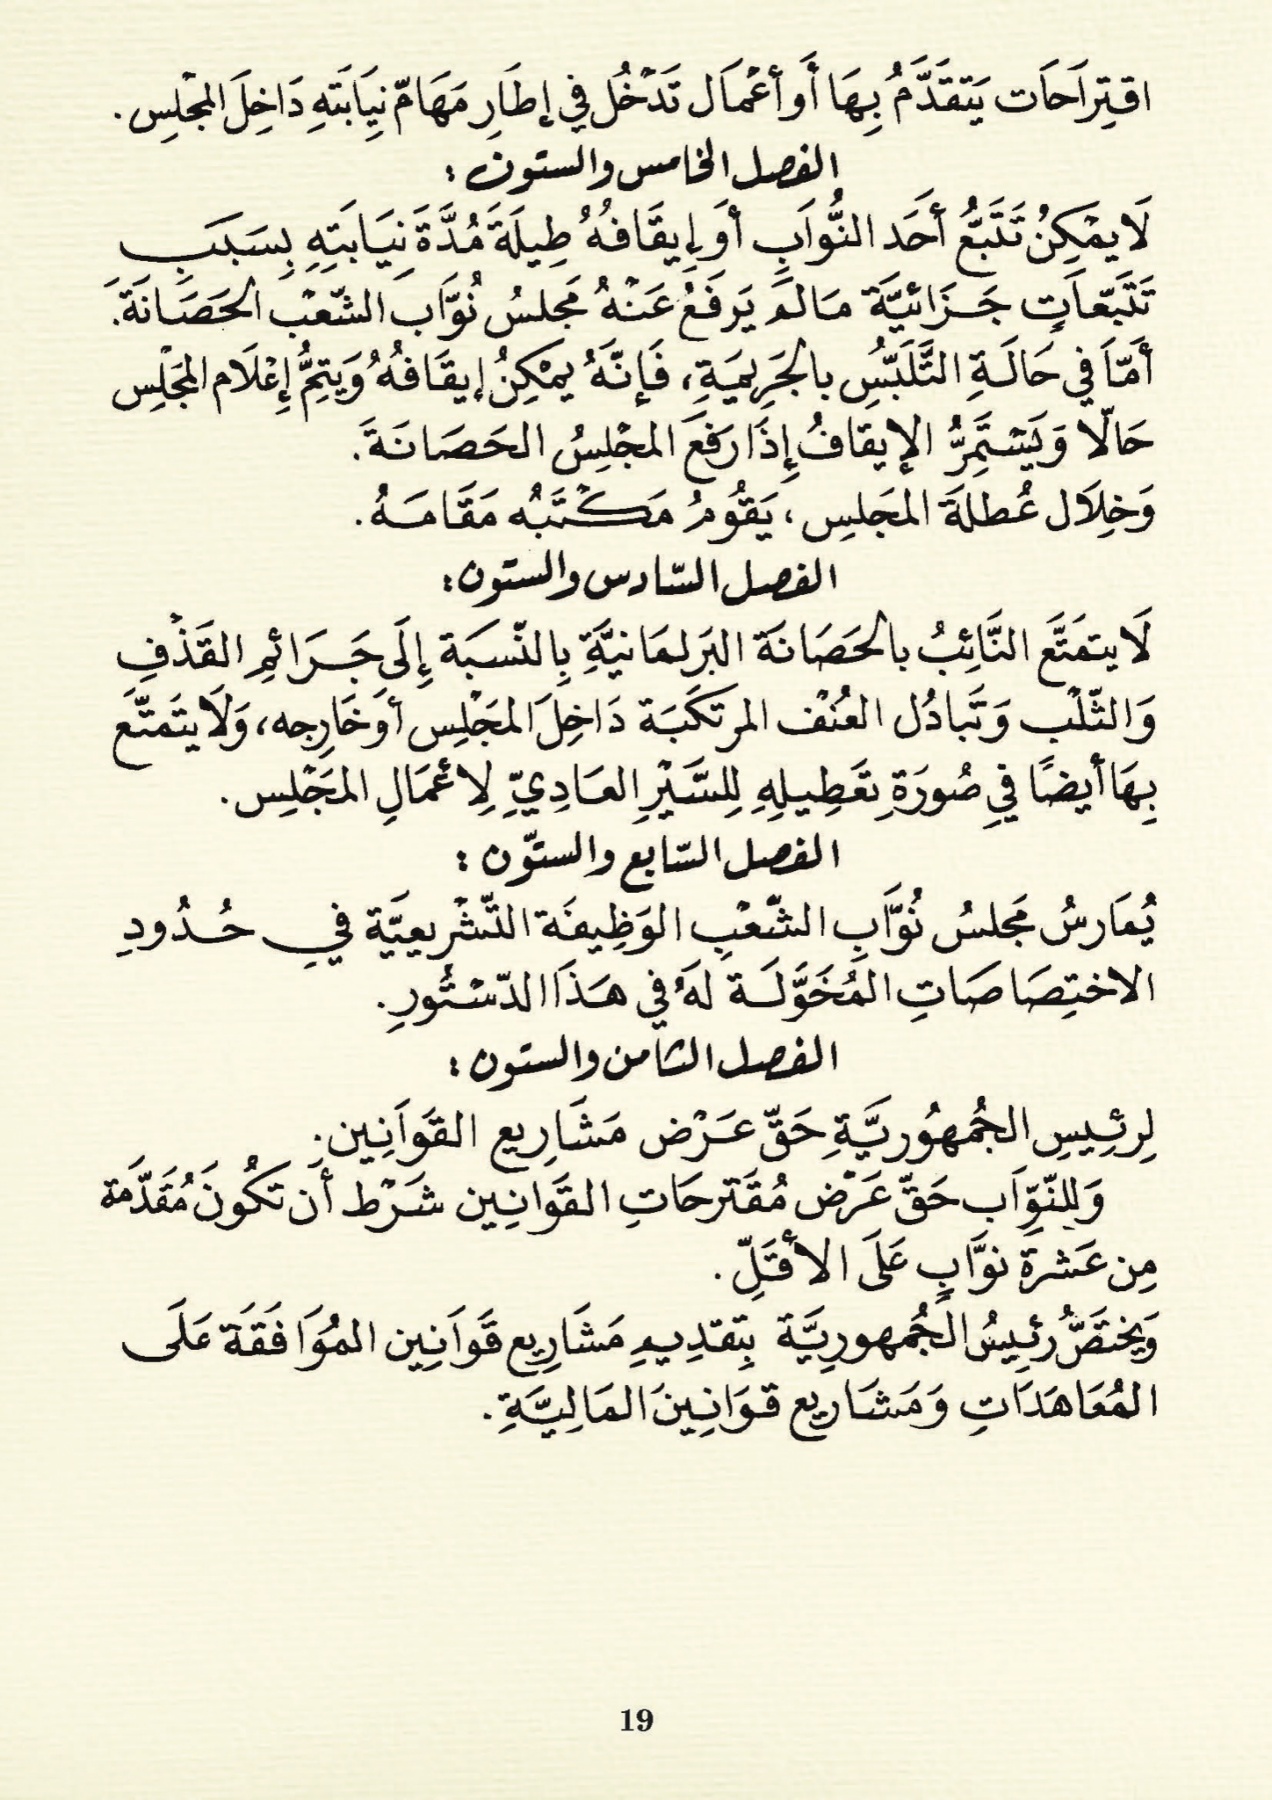 اقتِراَحَات يَتَقَدَّمُ بِهَا أَو أعْمَال تَدْخُل في إطَارِ مَهَامّ نِيَابَتهِ دَاخِلَ المجْلِسِ.
الفصل الخامس والستون :
لَا يمْكِنُ تَتَبُّع أحَد النُّوَابِ أوَ إيقَافهُ طِيلَةَ مُدَّةَ نِيَابَتِهِ بِسَبَبِ
تَتَبّعَاتٍ جَزَائيّة مَا لَم يَرفَعُ عَنْهُ مَجلسُ نُوّاب الشّعْب الحَصَانَةَ.
أمّاَ في حَالَةِ التَّلَبّسُِ بالجَرِيمَةِ، فَإنّهَُ يمْكِنُ إيقَافهُ وَيَتِمُّ إعْلَام المجَلِس
حَالّا وَيَسْتَمِرُّ الإيقافُ إذَا رَفعَ المجْلِسُ الحَصَانَةَ.
وَخِلَال عُطلةَ المجَلسِ، يَقُومُ مَكْتَبُه مَقَامَهُ.
الفصل السّادس والستون:
لَا يتمَتَّع النَّائِبُ بالحَصَانَة البَرلمَانيَّةِ بِالنّسبَة إلَى جَرَائِم القَذْفِ
وَالثّلْب وَتَبادُل العُنْف المرتكَبَة دَاخِلَ المجَلْس أوخَارِجه، وَلَا يتَمتّعَ
بِهَا أيضًا في صُورَةِ تعَطِيلِهِ لِلسَّيْرِ العَادِيِّ لِأعْمَالِ المجَلِس.
الفصل السّابع والستّون :
يُمَارسُ مَجلسُ نُوَّابِ الشّعْبِ الوَظِيفَة التّشْريعِيَّة في حُدُودِ
الاختِصَاصَاتِ المُخَوَّلَة لهَُ في هَذَا الدّسْتُورِ.
الفصل الثامن والستون :
لِرئِيسِ الجُمهُوريَّةِ حَقّ عَرْض مَشَارِيع القَوَانِين.
وَلِلنّوّاَب حَقّ عَرْض مُقَترحَاتِ القَوَانِين شَرْط أَن تكُونَ مُقَدَّمَة
مِن عَشرَة نوَّابٍ عَلَى الأقَلِّ.
وَيختَصُّ رئِيسُ الجُمهوريَّة بِتقدِيمِ مَشَارِيع قَوَانِين المُوَافَقَة عَلَى
المُعَاهَدَاتِ وَمَشَاريع قوَانِينَ المَالِيَّةِ.
19